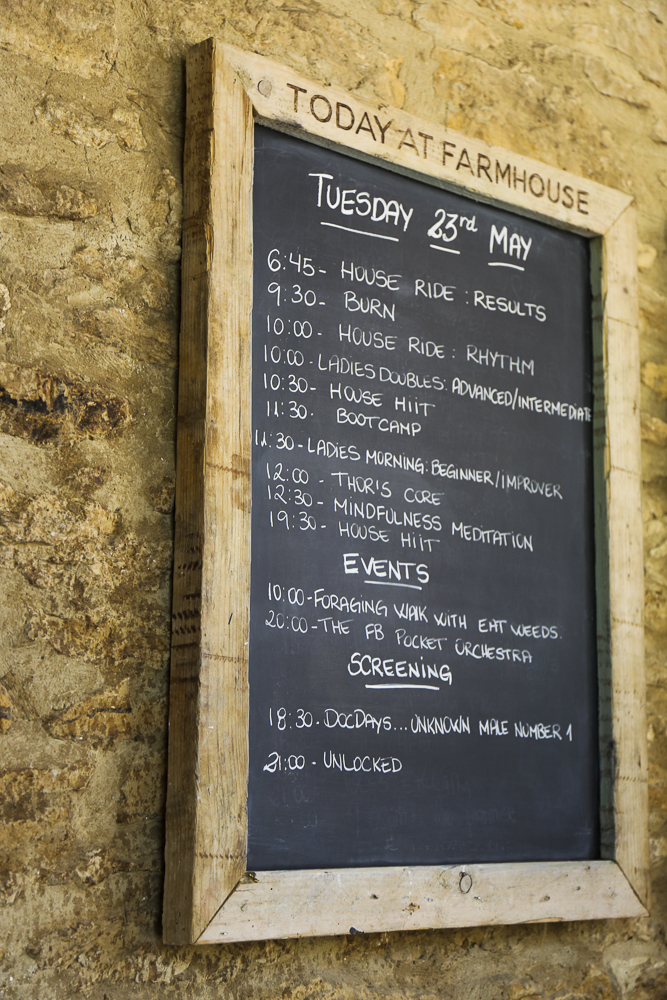 TODAY AT FARMHOUSE
TUESDAY 23rd MAY
6:45- HOUSE RIDE : RESULTS
9:30- BURN
10:00- HOUSE RIDE : RHYTHM
10:00-LADIES DOUBLES: ADVANCED/INTERMEDIATE
10:30- HOUSE HIIT
11:30- BOOTCAMP
11:30-LADIES MORNING: BEGINNER/IMPROVER
12:00 - THOR'S CORE
12:30- MINDFULNESS MEDITATION
19:30- HOUSE HIIT
EVENTS
10:00-FORAGING WALK WITH EAT WEEDS.
20:00-THE FB POCKET ORCHESTRA
SCREENING
18:30-DOCDAYS...UNKNOWN MALE NUMBER 1
21:00 - UNLOCKED